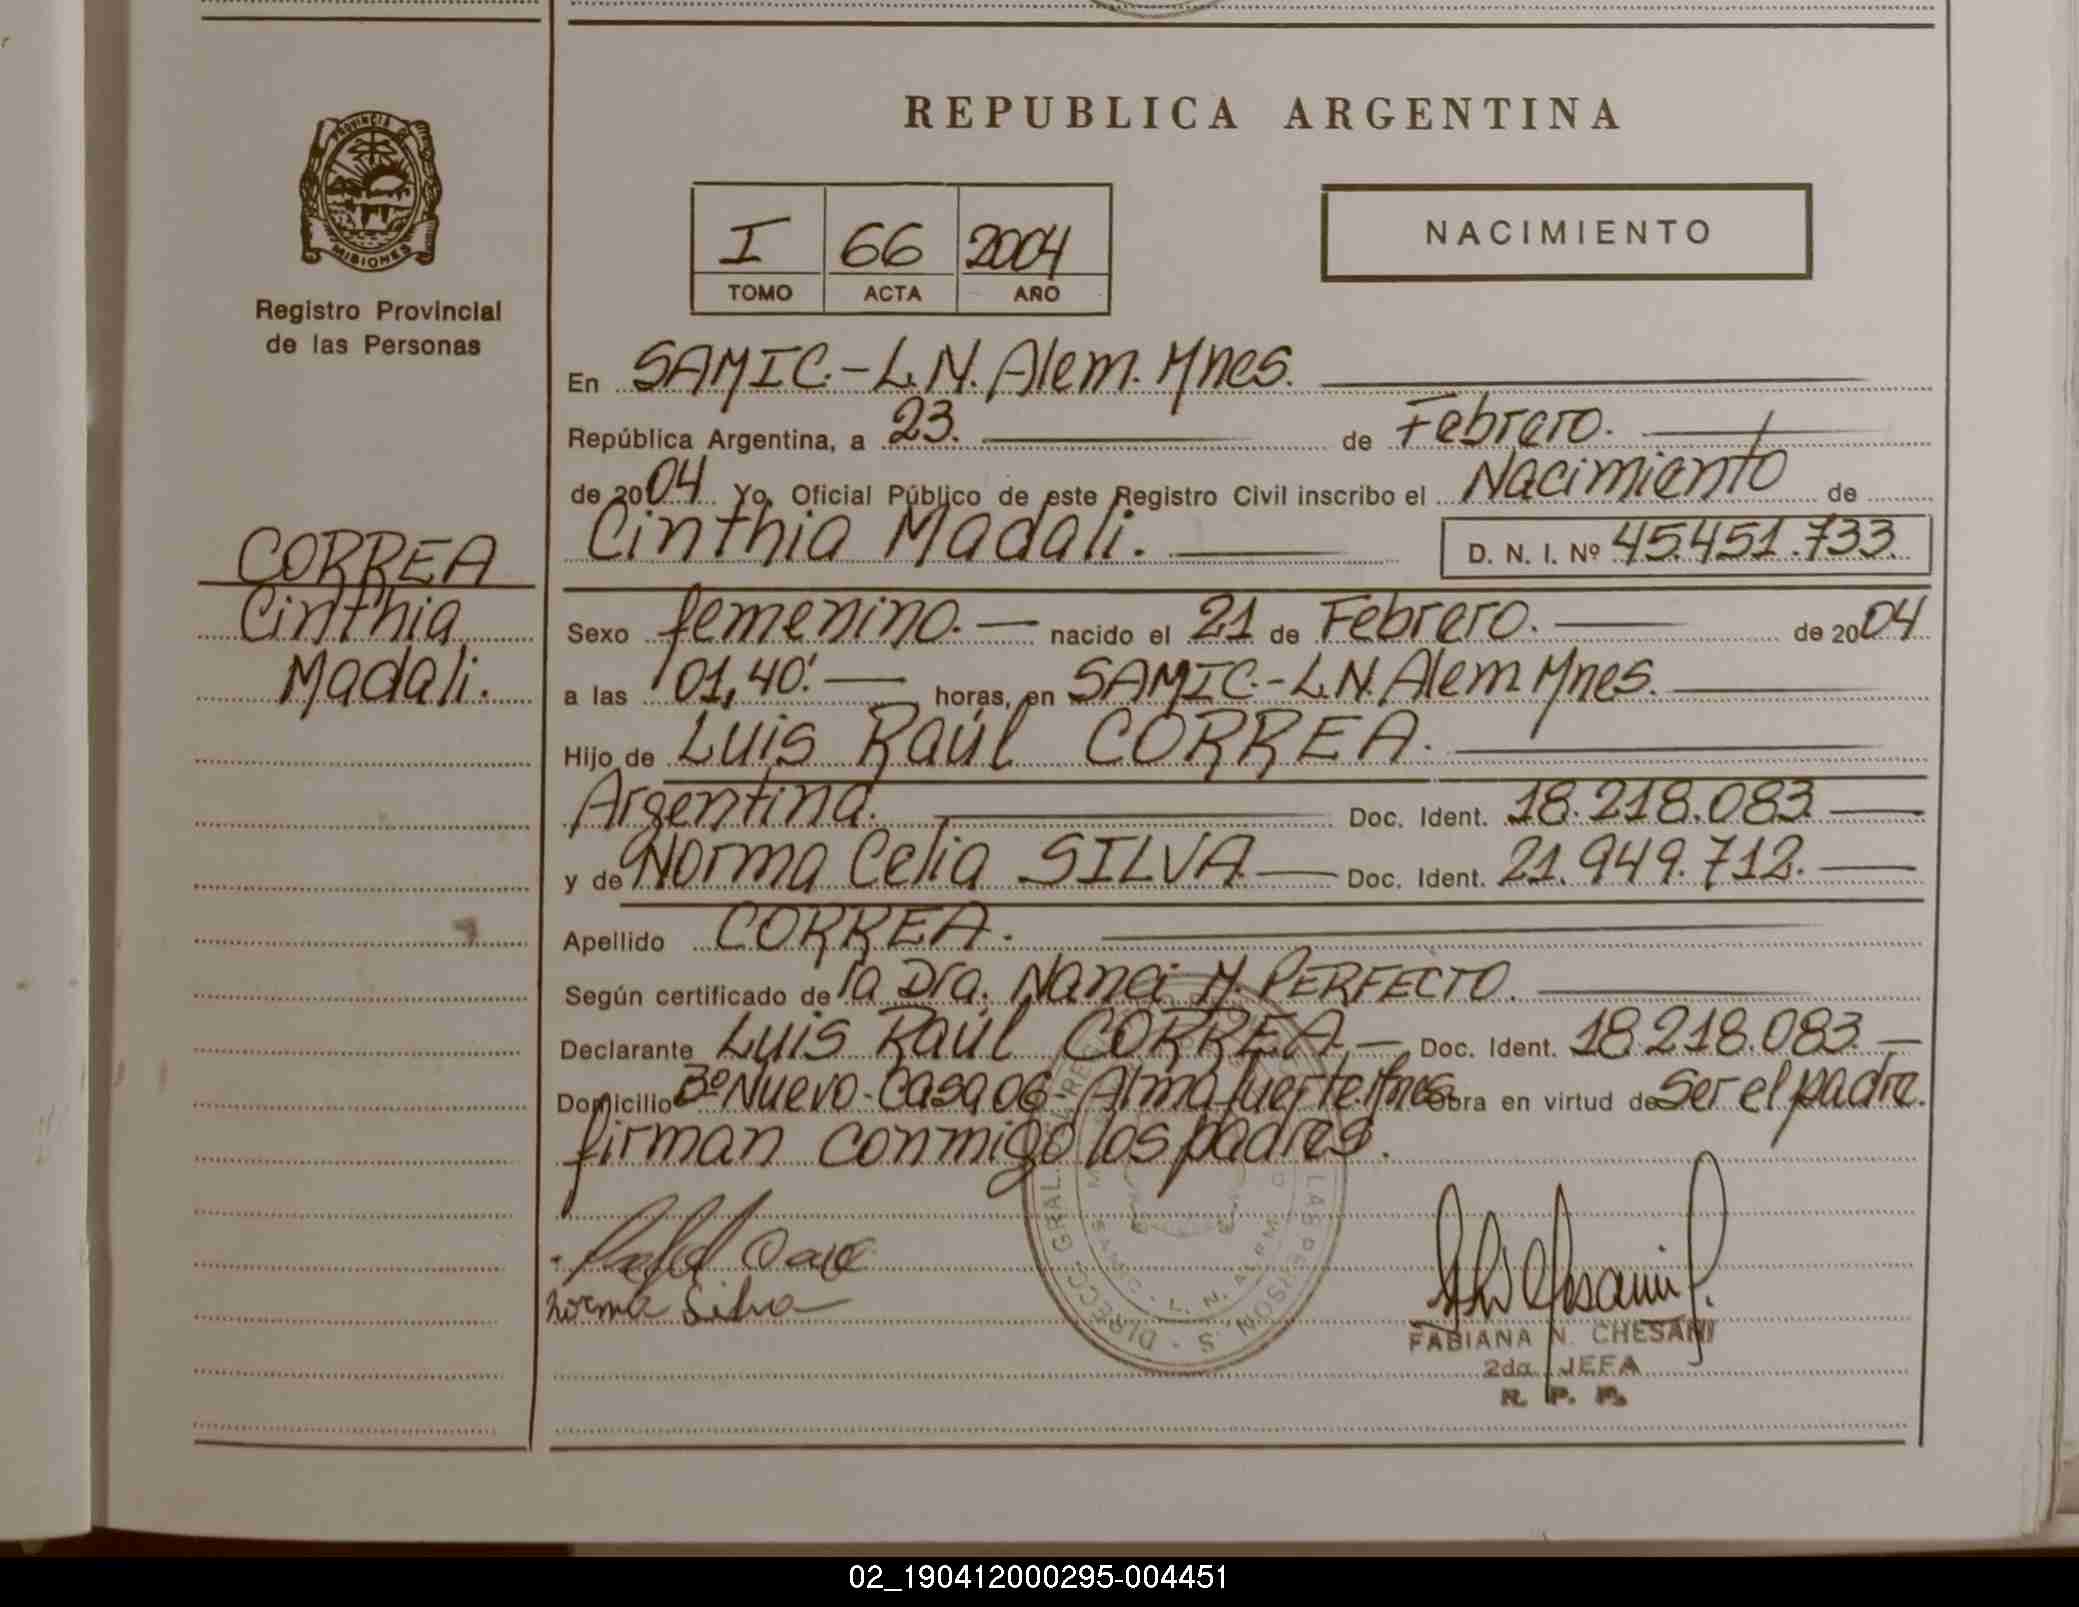 REPUBLICA ARGENTINA
PROVINCIA DE
MISIONES
Registro Provincial
de las Personas
I 66 2004
TOMO ACTA AÑO
NACIMIENTO
En SAMIC.-L.N. Alem. Mnes.
República Argentina, a 23. de Febrero.
de 2004 Yo, Oficial Público de este Registro Civil inscribo el Nacimiento de
Cinthia Madali. D. N. I. Nº 45.451.733
CORREA
Cinthia
Madali.
Sexo femenino.- nacido el 21 de Febrero. de 2004
a las 01,40'.- horas, en SAMIC.-L.N. Alem Mnes.
Hijo de Luis Raúl CORREA.
Argentina. Doc. Ident. 18.218.083
y de Norma Celia SILVA Doc. Ident. 21.949.712.
Apellido CORREA.
Según certificado de la Dra. Nanci M. PERFECTO.
Declarante Luis Raúl CORREA- Doc. Ident. 18.218.083.-
Domicilio Bº Nuevo-Casa 06-Almafuerte.Mnes Obra en virtud de Ser el padre.
firman conmigo los padres.
norma Silva
DIRECC. GRAL. LAS PERSON.
SAMIC - L. N. ALEM
FABIANA N. CHESANI
2da. JEFA
R. P. P.
02_190412000295-004451